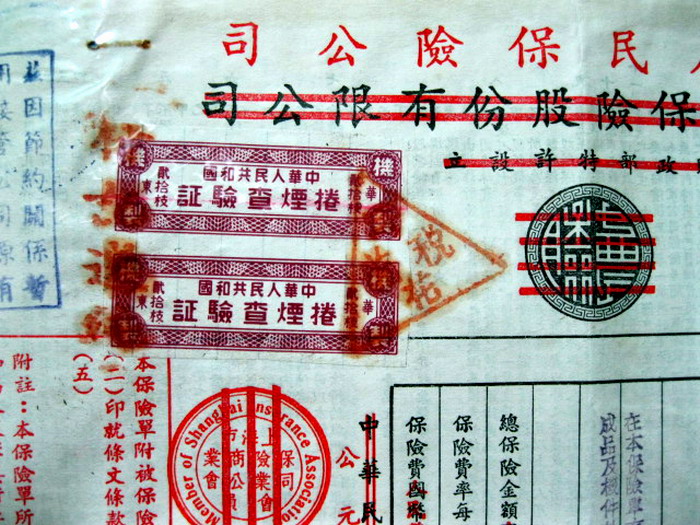 民保險公司
保險股份有限公司
政郵特許設立
茲因節約關係暫
用接管公司原有
機製
華東
中華人民共和國
捲煙查驗証
貳拾枝
機製
華東
中華人民共和國
捲煙查驗証
貳拾枝
稅
Member of Shanghai Insurance Association
在本保險單
成品及機件
總保險金額
保險費率每
保險費國幣
中華民
公元
本保險單附被保險
(二)印就條文條款
(五)
附註：本保險單所